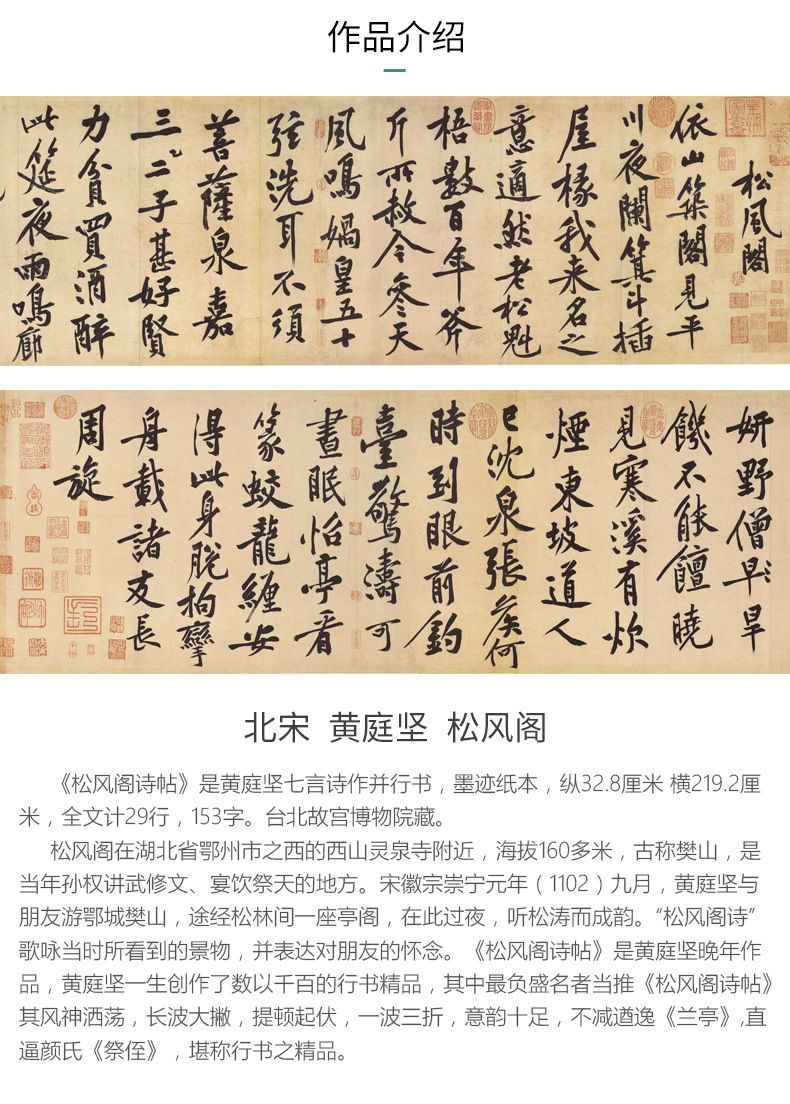 作品介绍
松風閣
依山築閣見平
川夜闌箕斗插
屋椽我来名之
意適然老松魁
梧數百年斧
斤所赦今參天
風鳴媧皇五十
弦洗耳不須
菩薩泉嘉
三二子甚好賢
力貧買酒醉
此筵夜雨鳴廊
妍野僧早旱
饑不能饘曉
見寒溪有炊
煙東坡道人
已沈泉張矦何
時到眼前釣
臺驚濤可
晝眠怡亭看
篆蛟龍纏安
得此身脫拘攣
舟載諸友長
周旋
北宋 黄庭坚 松风阁
《松风阁诗帖》是黄庭坚七言诗作并行书，墨迹纸本，纵32.8厘米 横219.2厘
米，全文计29行，153字。台北故宫博物院藏。
松风阁在湖北省鄂州市之西的西山灵泉寺附近，海拔160多米，古称樊山，是
当年孙权讲武修文、宴饮祭天的地方。宋徽宗崇宁元年（1102）九月，黄庭坚与
朋友游鄂城樊山，途经松林间一座亭阁，在此过夜，听松涛而成韵。“松风阁诗”
歌咏当时所看到的景物，并表达对朋友的怀念。《松风阁诗帖》是黄庭坚晚年作
品，黄庭坚一生创作了数以千百的行书精品，其中最负盛名者当推《松风阁诗帖》
其风神洒荡，长波大撇，提顿起伏，一波三折，意韵十足，不减遒逸《兰亭》,直
逼颜氏《祭侄》，堪称行书之精品。